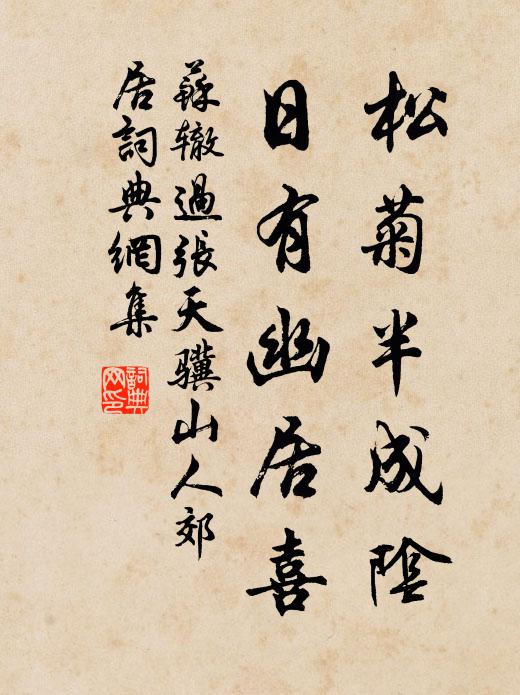 松菊半成陰
日有幽居喜
蘇辙過張天骥山人郊
居詞典網集
詞典
网印